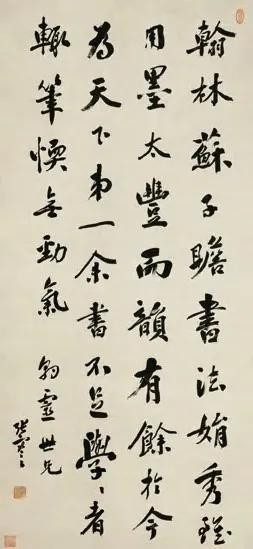 翰林蘇子瞻書法娟秀雖
用墨太豐而韻有餘於今
為天下弟一余書不足學々者
輙筆愞無勁氣
靈世兄